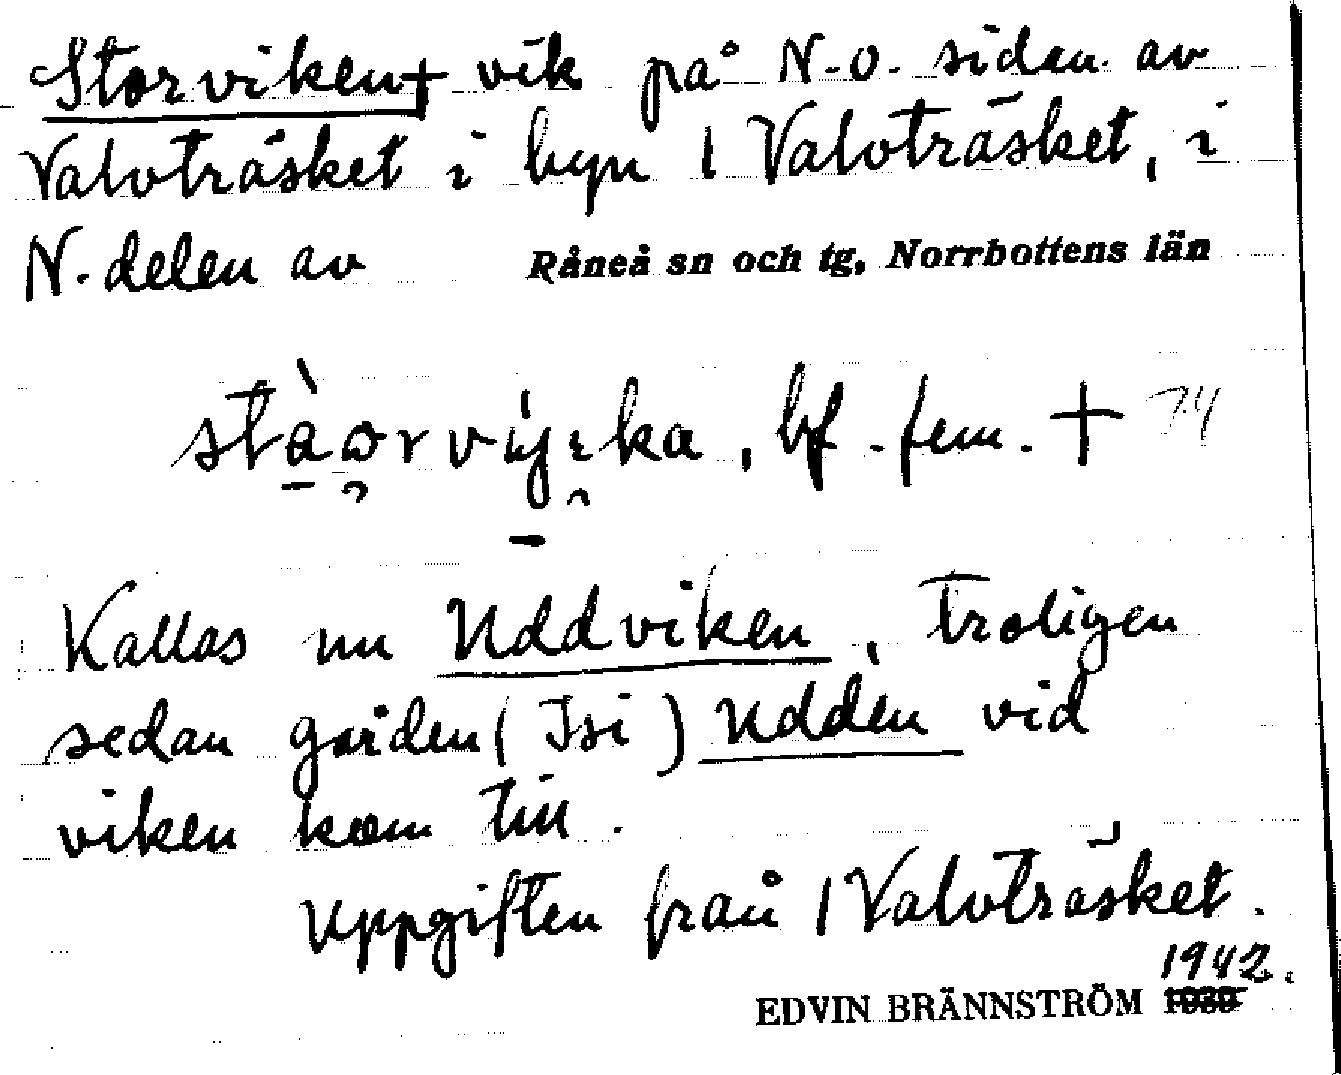 Storviken + vik på N-O. sidan av
Valvträsket i byn 1 Valvträsket, i
N. delen av Råneå sn och tg, Norrbottens län
bf. fem. + 74
Kallas nu Uddviken, troligen
sedan gården (Isi) Udden vid
viken kom till.
Uppgiften från 1 Valvträsket.
1942.
EDVIN BRÄNNSTRÖM 1939